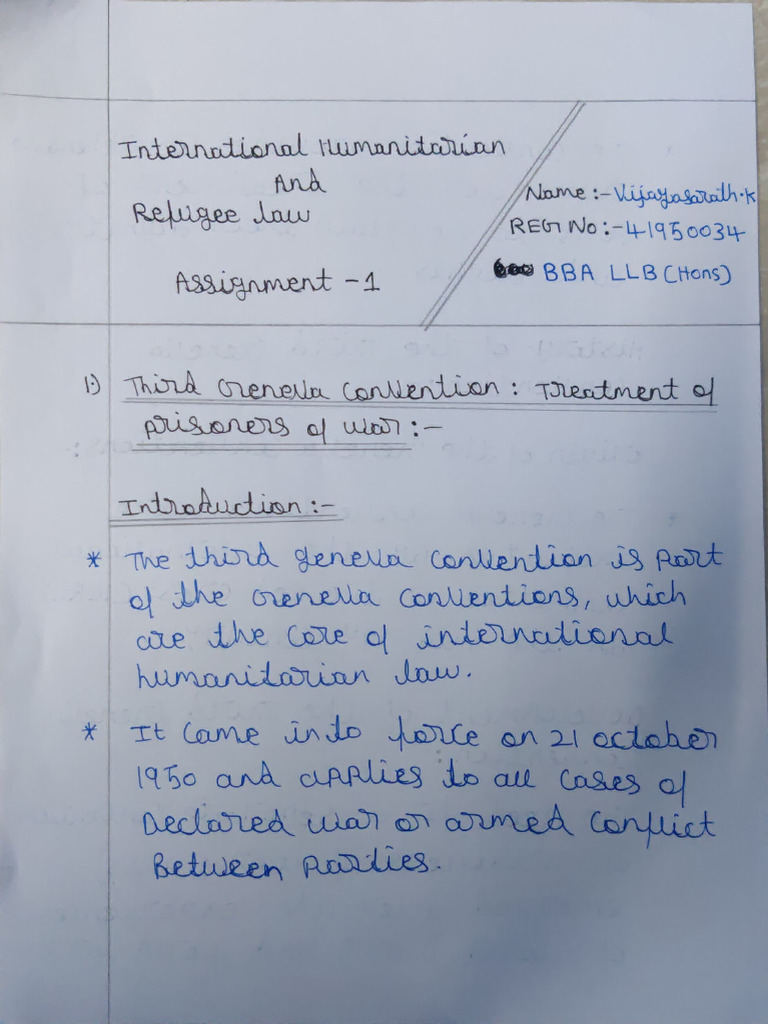 International Humanitarian
And
Refugee law
Assignment - 1
Name :- Vijayasarath.K
REG No :- 41950034
BBA LLB (Hons)
1.) Third Geneva Convention : Treatment of
prisoners of war :-
Introduction :-
* The third geneva convention is part
of the Geneva conventions, which
are the core of international
humanitarian law.
* It came into force on 21 october
1950 and applies to all cases of
Declared war or armed conflict
Between parties.